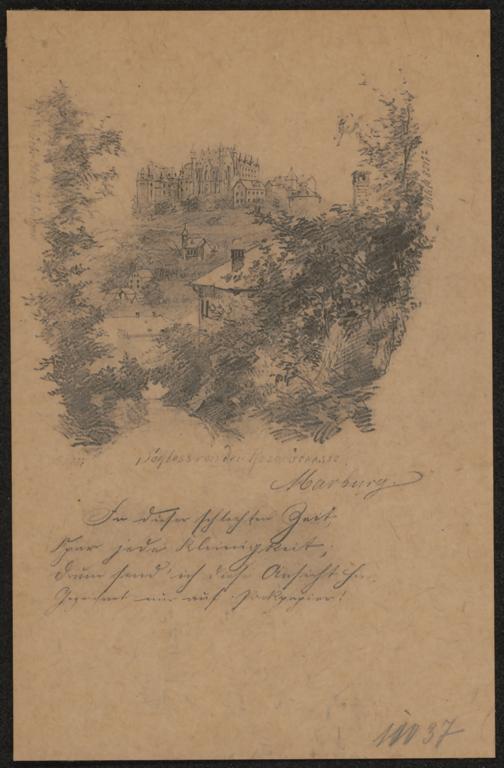 Schloss von der Rosenstrasse
Marburg
In dieser schlechten Zeit,
Spar jede Kleinigkeit,
Drum send' ich diese Ansicht
Gezeichnet nur auf Packpapier!
11037